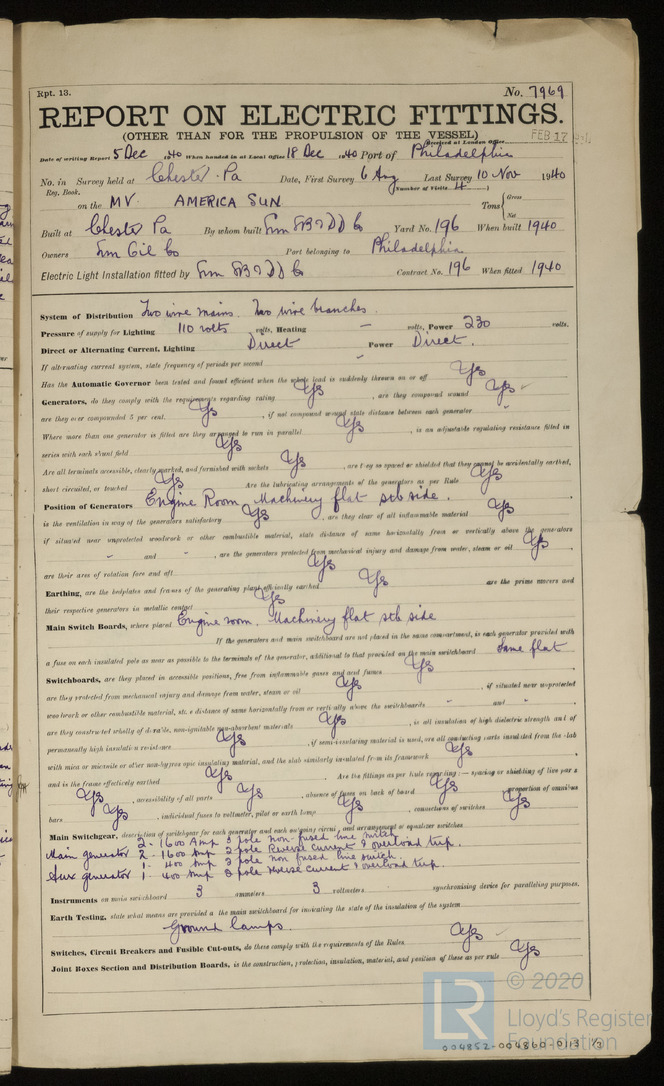 Rpt. 13.
No. 7969
REPORT ON ELECTRIC FITTINGS.
(OTHER THAN FOR THE PROPULSION OF THE VESSEL)
Received at London Office
FEB 17
Date of writing Report 5 Dec 1940 When handed in at Local Office 18 Dec 1940 Port of Philadelphia
No. in Survey held at Chester. Pa Date, First Survey 6 Aug Last Survey 10 Nov 1940
Reg. Book. (Number of Visits 4)
on the MV. AMERICA SUN Tons { Gross
Net
Built at Chester Pa By whom built Sun SB & DD Co Yard No. 196 When built 1940
Owners Sun Oil Co Port belonging to Philadelphia
Electric Light Installation fitted by Sun SB & DD Co Contract No. 196 When fitted 1940
System of Distribution Two wire mains. Two wire branches.
Pressure of supply for Lighting 110 volts volts, Heating – volts, Power 230 volts.
Direct or Alternating Current, Lighting Direct Power Direct.
If alternating current system, state frequency of periods per second –
Has the Automatic Governor been tested and found efficient when the whole load is suddenly thrown on or off Yes
Generators, do they comply with the requirements regarding rating Yes, are they compound wound Yes
are they over compounded 5 per cent. Yes, if not compound wound state distance between each generator "
Where more than one generator is fitted are they arranged to run in parallel Yes, is an adjustable regulating resistance fitted in
series with each shunt field Yes
Are all terminals accessible, clearly marked, and furnished with sockets Yes, are they so spaced or shielded that they cannot be accidentally earthed,
short circuited, or touched Yes Are the lubricating arrangements of the generators as per Rule Yes
Position of Generators Engine Room Machinery flat stb side.
is the ventilation in way of the generators satisfactory Yes, are they clear of all inflammable material Yes
if situated near unprotected woodwork or other combustible material, state distance of same horizontally from or vertically above the generators
" and ", are the generators protected from mechanical injury and damage from water, steam or oil Yes
are their axes of rotation fore and aft Yes
Earthing, are the bedplates and frames of the generating plant efficiently earthed Yes are the prime movers and
their respective generators in metallic contact Yes
Main Switch Boards, where placed Engine room. Machinery flat stb side
If the generators and main switchboard are not placed in the same compartment, is each generator provided with
a fuse on each insulated pole as near as possible to the terminals of the generator, additional to that provided on the main switchboard Same flat
Switchboards, are they placed in accessible positions, free from inflammable gases and acid fumes Yes
are they protected from mechanical injury and damage from water, steam or oil Yes, if situated near unprotected
woodwork or other combustible material, state distance of same horizontally from or vertically above the switchboards " and "
are they constructed wholly of durable, non-ignitable non-absorbent materials Yes, is all insulation of high dielectric strength and of
permanently high insulation resistance Yes, if semi-insulating material is used, are all conducting parts insulated from the slab
with mica or micanite or other non-hygroscopic insulating material, and the slab similarly insulated from its framework Yes
and is the frame effectively earthed Yes Are the fittings as per Rule regarding:— spacing or shielding of live parts
Yes, accessibility of all parts Yes, absence of fuses on back of board Yes, proportion of omnibus
bars Yes, individual fuses to voltmeter, pilot or earth lamp Yes, connections of switches Yes
Main Switchgear, description of switchgear for each generator and each outgoing circuit, and arrangement of equalizer switches
2 - 1600 Amp 3 pole non-fused line switch
Main generator 2 - 1600 Amp 2 pole Reverse current & overload trip.
1 - 400 Amp 3 pole non fused line switch.
Aux generator 1 - 400 Amp 3 pole reverse current & overload trip.
Instruments on main switchboard 3 ammeters 3 voltmeters synchronising device for paralleling purposes.
Earth Testing, state what means are provided at the main switchboard for indicating the state of the insulation of the system
Ground lamps.
Switches, Circuit Breakers and Fusible Cut-outs, do these comply with the requirements of the Rules Yes
Joint Boxes Section and Distribution Boards, is the construction, protection, insulation, material, and position of these as per rule Yes
© 2020
LR
Lloyd's Register
Foundation
004852-004860-0113 1/2